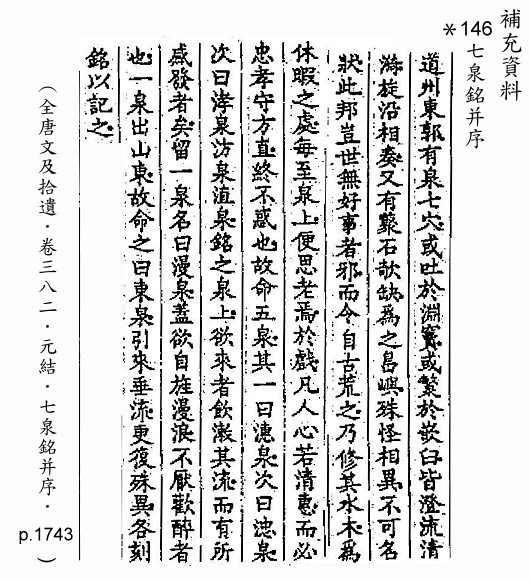 補充資料
＊146
七泉銘并序
道州東郭有泉七穴或吐於淵竇或繁於嵌臼皆澄流清
漪旋沿相奏又有藂石欹缺為之島嶼殊怪相異不可名
狀此邦豈世無好事者邪而令自古荒之乃修其水木為
休暇之處每至泉上便思老焉於戲凡人心若清惠而必
忠孝守方直終不惑也故命五泉其一曰潓泉次曰㵪泉
次曰涍泉汸泉淔泉銘之泉上欲來者飲漱其流而有所
感發者矣留一泉名曰漫泉蓋欲自旌漫浪不厭歡醉者
也一泉出山東故命之曰東泉引來垂流更復殊異各刻
銘以記之
（全唐文及拾遺．卷三八二．元結．七泉銘并序．p.1743）